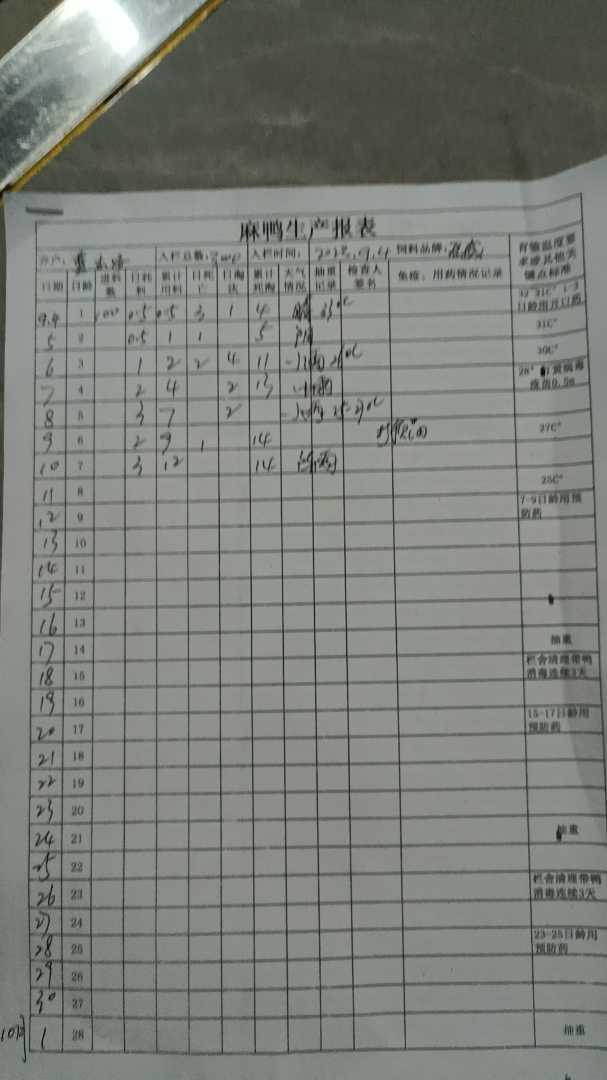 麻鸭生产报表
养户: 入栏总数: 入栏时间: 2023.9.4 饲料品牌: 育雏温度要求涉及其他关键点标准
日期 日龄 进料数 日耗料 累计用料 日死亡 日淘汰 累计死淘 天气情况 抽重记录 检查人签名 免疫、用药情况记录
9.4 1 100 0.5 0.5 3 1 4 晴
5 2 0.5 1 1 5 阴 31C°
6 3 1 2 2 4 11 小雨 30C°
7 4 2 4 2 13 小雨
8 5 3 7 2
9 6 2 9 1 14 27C°
10 7 3 12 14
11 8 25C°
12 9 7-9日龄用预防药
13 10
14 11
15 12
16 13
17 14 抽重
18 15 栏舍清理带鸭消毒连续3天
19 16
20 17 15-17日龄用预防药
21 18
22 19
23 20
24 21 抽重
25 22
26 23 栏舍清理带鸭消毒连续3天
27 24
28 25 23-25日龄用预防药
29 26
30 27
1 28 抽重